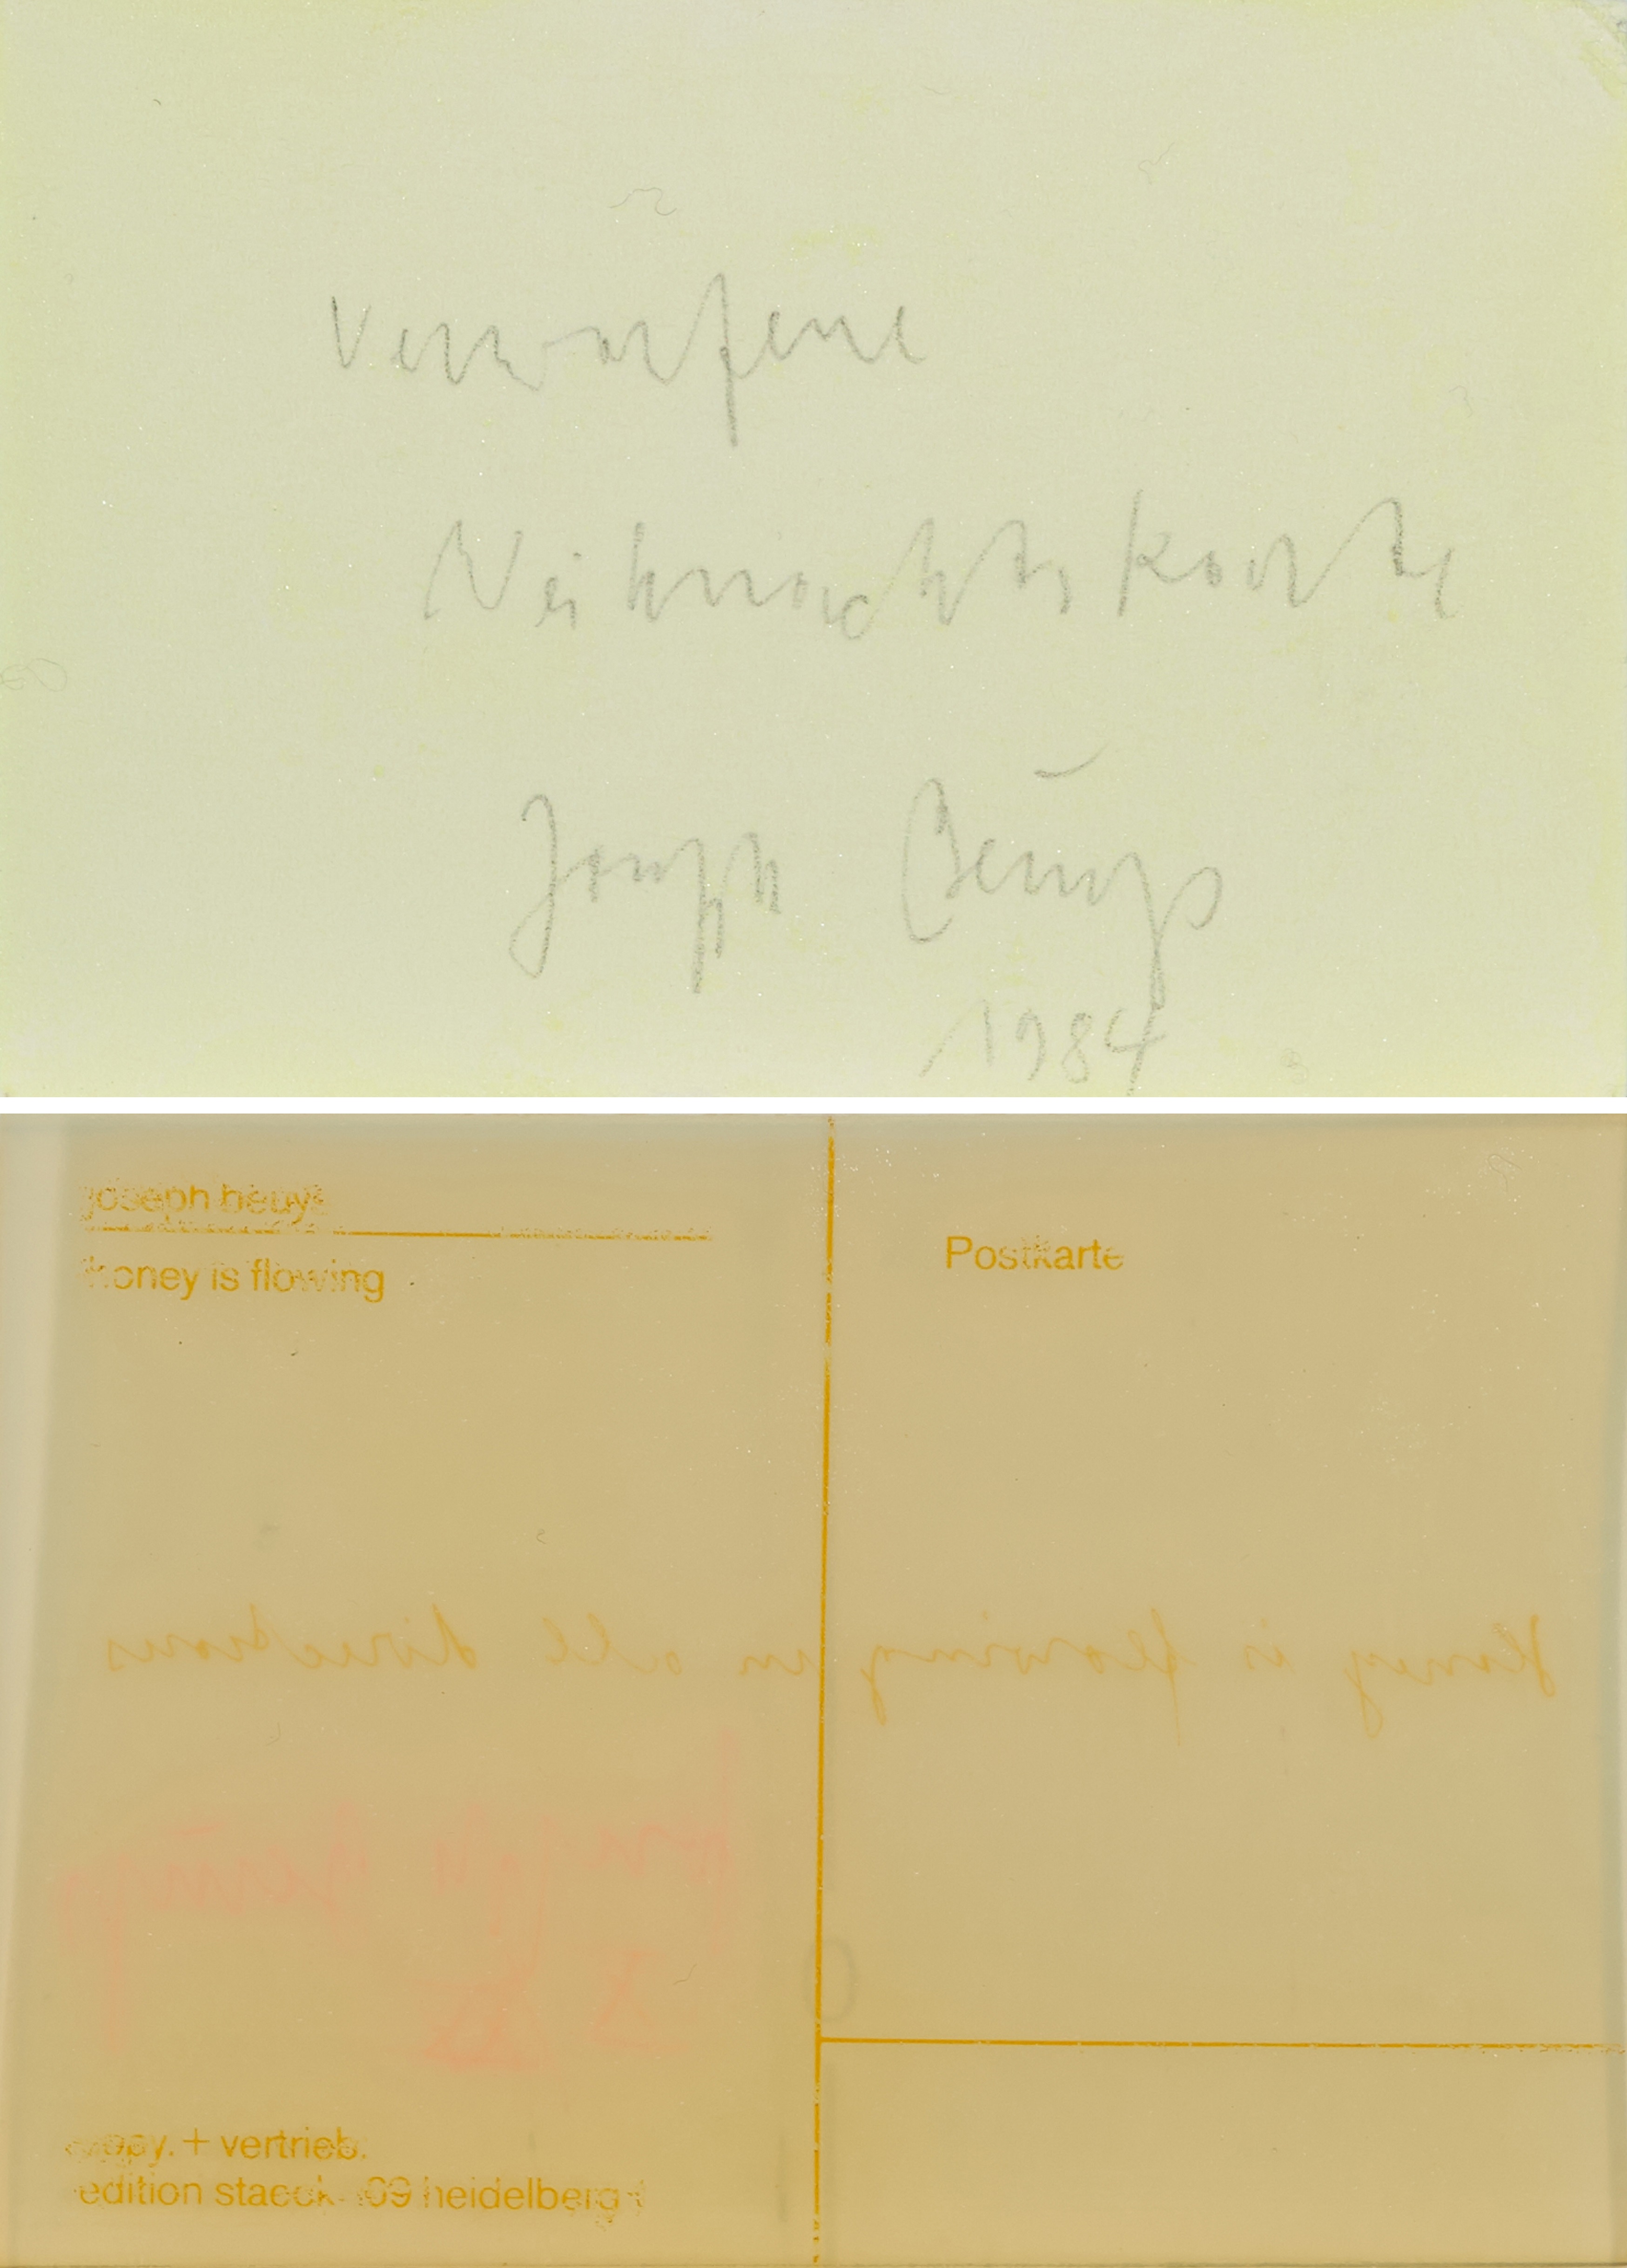 Verworfene
Weihnachtskarte
Joseph Beuys
1984
joseph beuys
honey is flowing
Postkarte
Honey is flowing in all directions
Joseph Beuys
copy. + vertrieb:
edition staeck 69 heidelberg 1